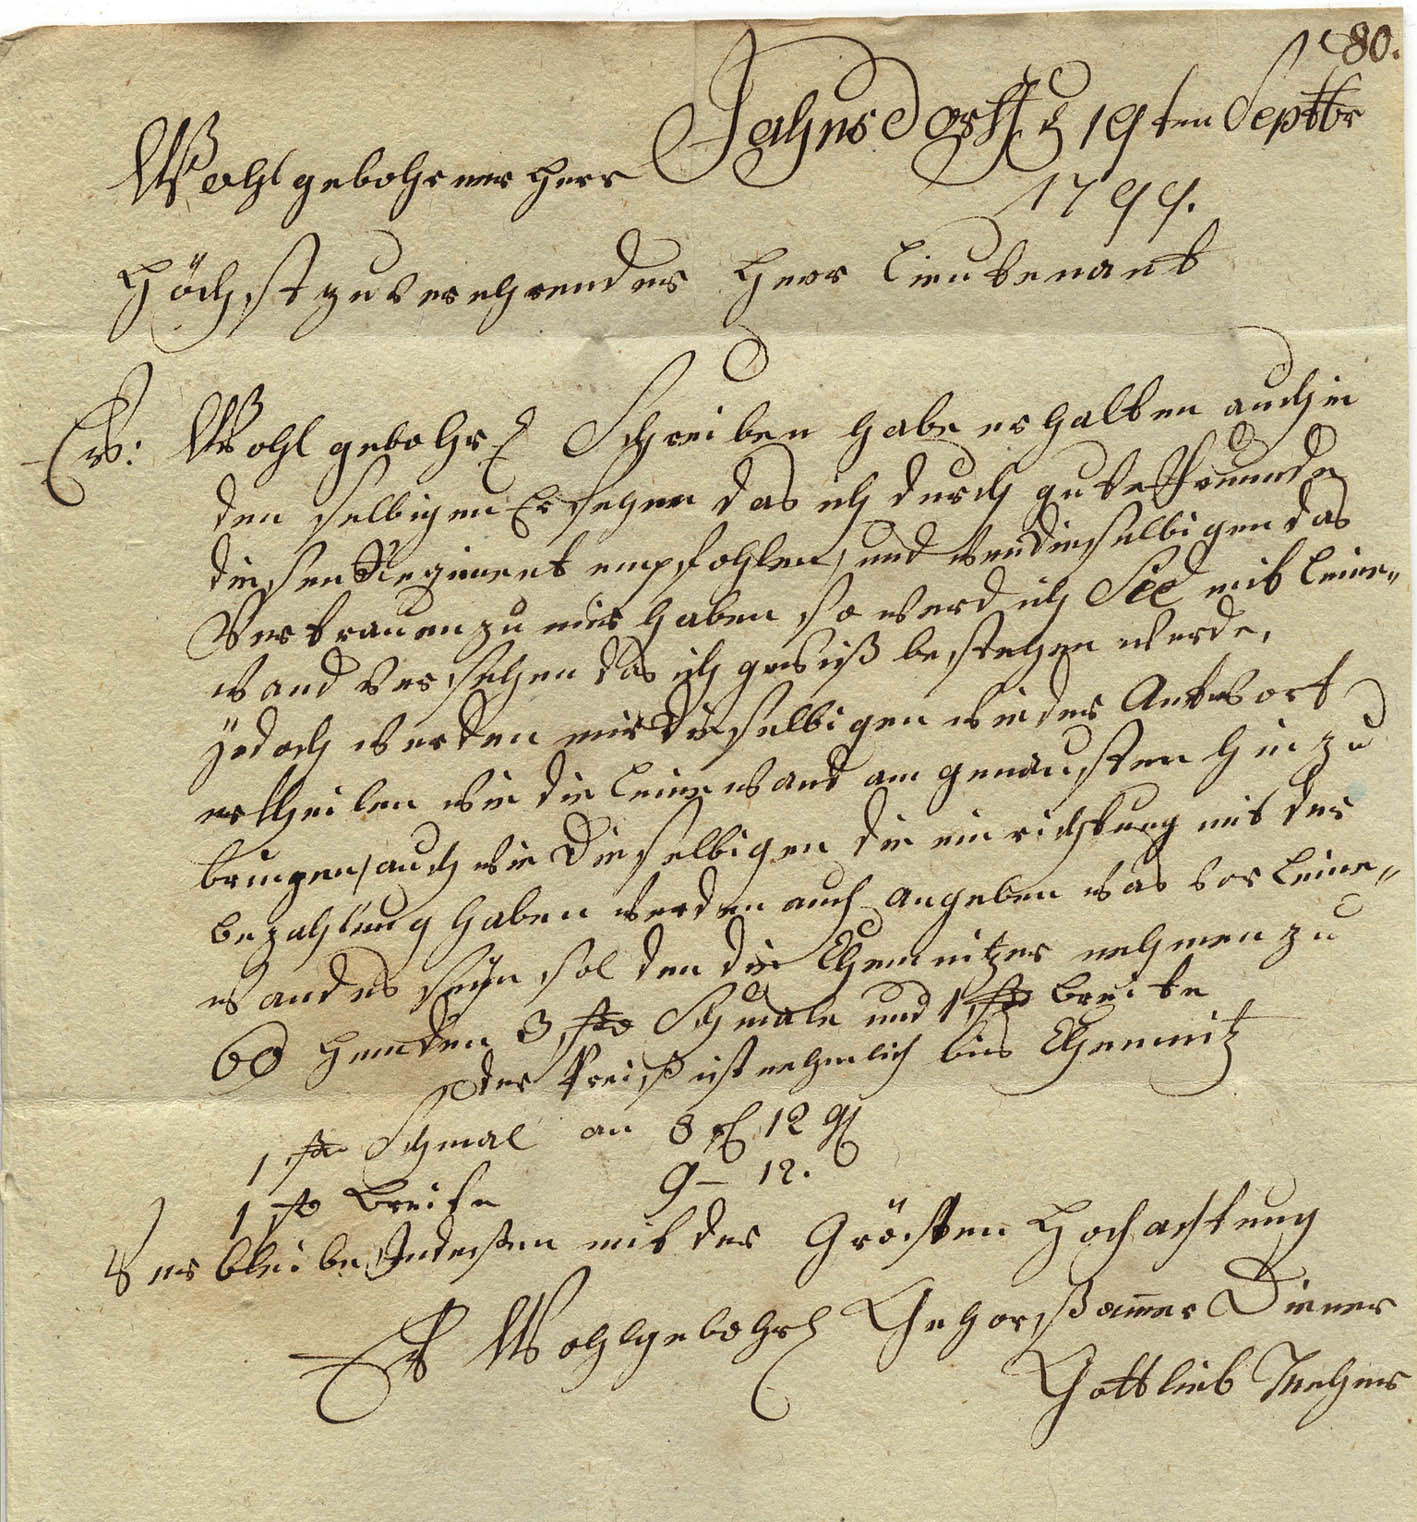 80.
Jahnsdorff d 19ten Septbr
1799.
Wohlgebohrner Herr
Höchst zu verehrender Herr Lieutenant
Ew: Wohlgebohr Schreiben habe erhalten auch in
den selbigen Ersehen das ich durch gute Freunde
diesen Regiment empfohlen, und wen dieselbigen das
Vertrauen zu mir haben so werd ich See mit Leine-
wand versehen das ich gewiß bestehen werde,
jedoch werden mir dieselbigen wieder Antwort
ertheilen wie die Leinewand am genausten hin zu
bringen, auch wie Dieselbigen die einrichtung mit der
bezahlung haben werden auch angeben was vor Leine-
wand es seyn sol den die Chemnitzer nehmen zu
60 Hemden 3 ßo Schmale und 1 ßo breite
der Preiß ist nehmlich bis Chemnitz
1 ßo Schmal an 8 rl 12 gl
1 ßo Breite 9 – 12.
Verbleibe Indeßen mit der Grösten Hochachtung
Ew Wohlgebohr Gehorßamer Diener
Gottlieb